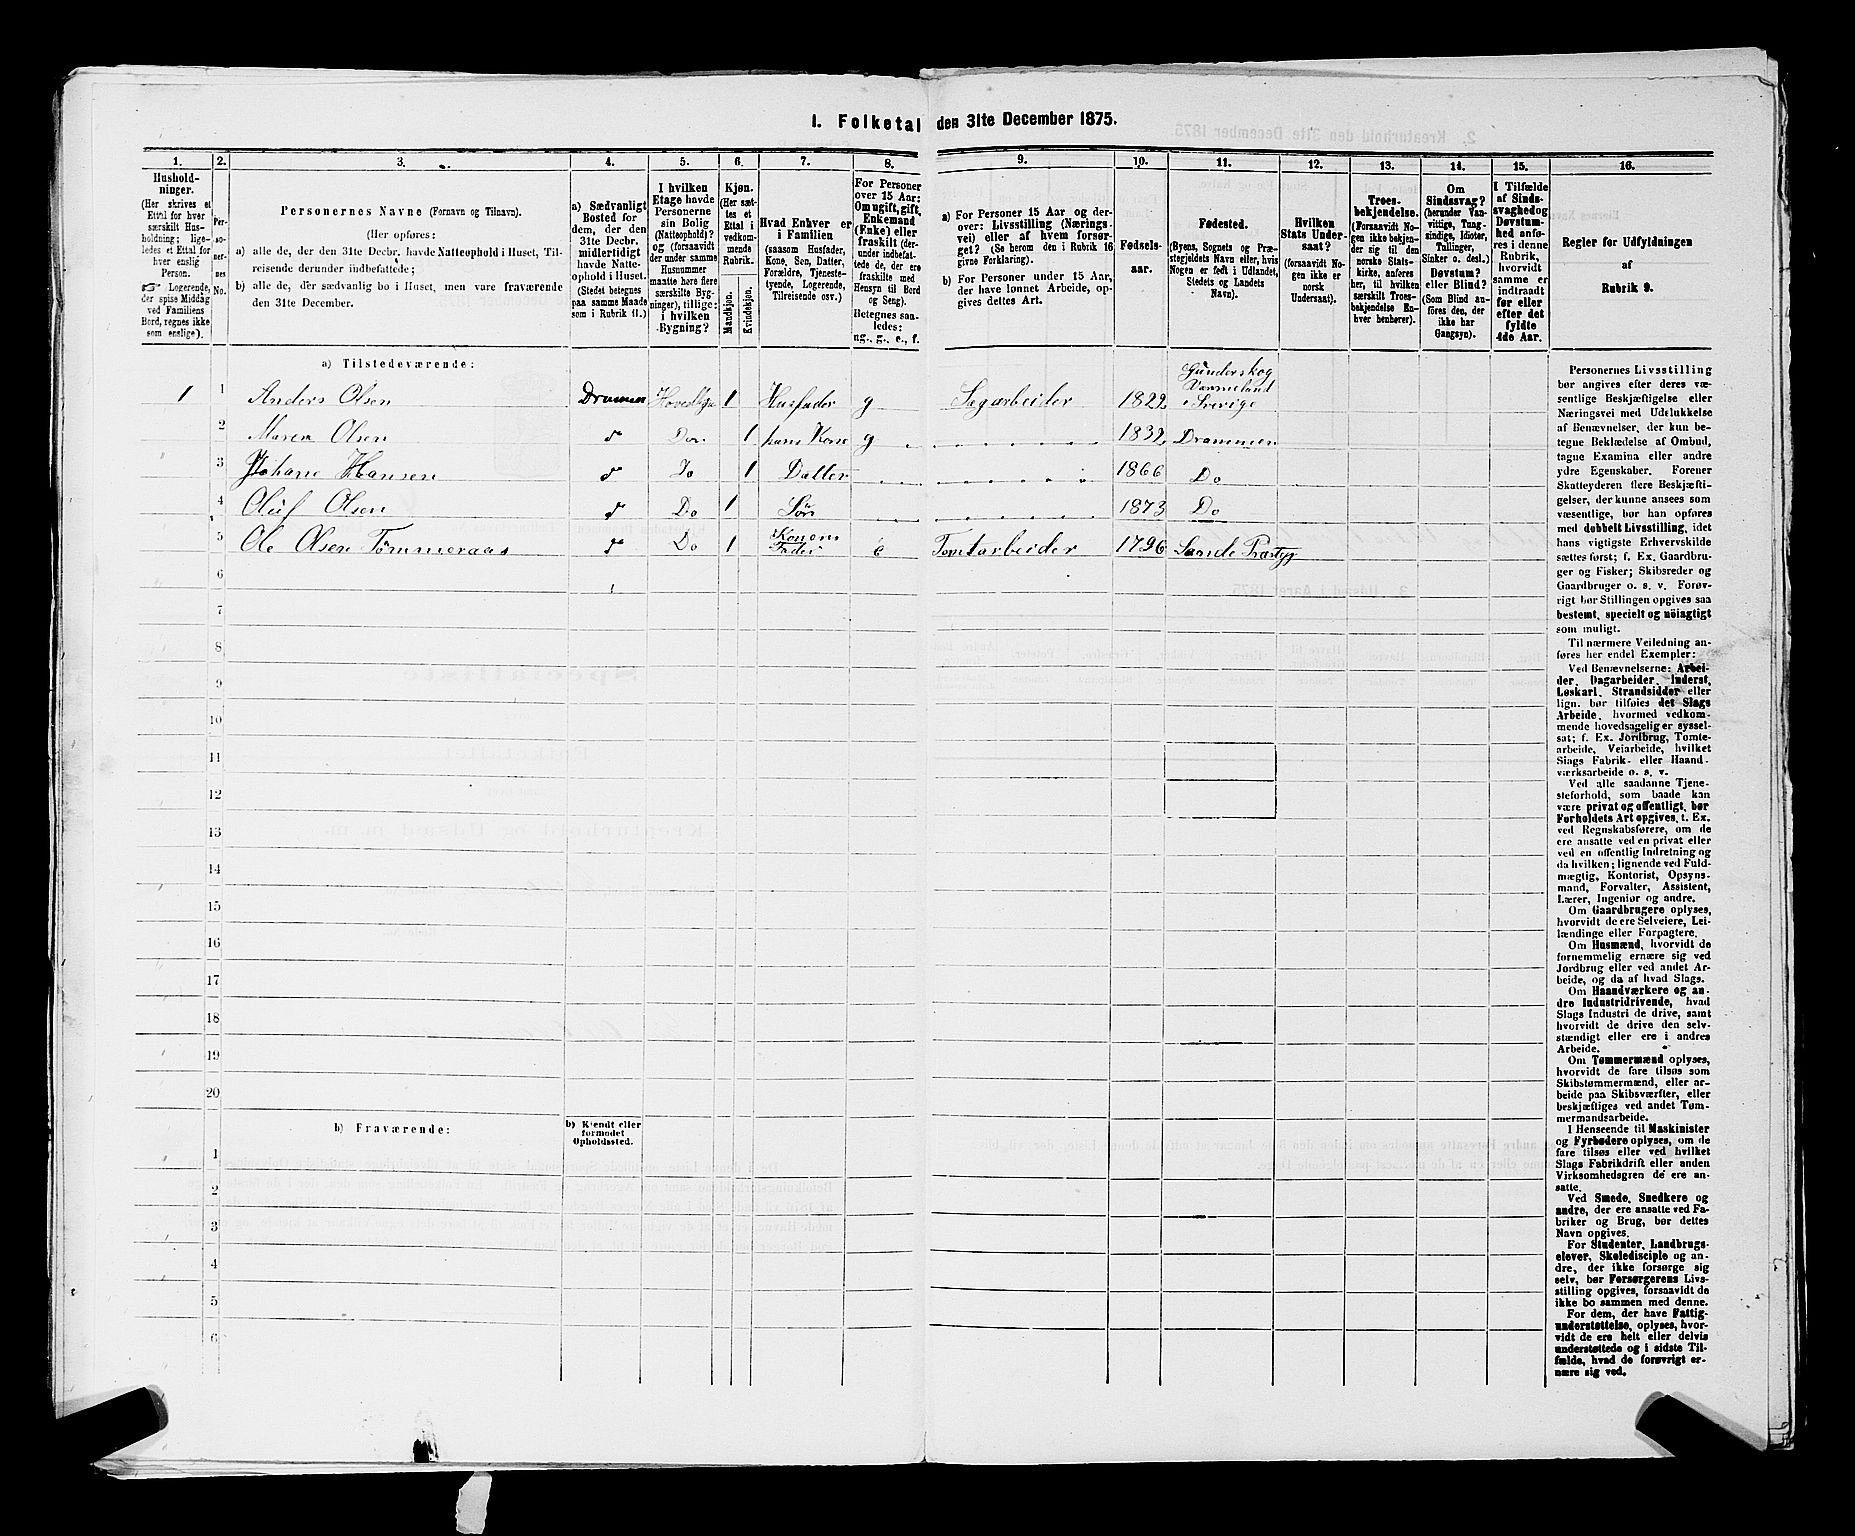 I. Folketal den 31te December 1875.
1. 2. 3. 4. 5. 6. 7. 8. 9. 10. 11. 12. 13. 14. 15. 16.
Hushold-
ninger.
(Her skrives et
Ettal for hver
særskilt Hus-
holdning; lige-
ledes et Ettal for
hver enslig
Person.
☞ Logerende,
der spise Middag
ved Familiens
Bord, regnes ikke
som enslige).
Per-
so-
ner-
nes
No.
Personernes Navne (Fornavn og Tilnavn).
(Her opføres:
a) alle de, der den 31te Decbr. havde Natteophold i Huset, Til-
reisende derunder indbefattede;
b) alle de, der sædvanlig bo i Huset, men vare fraværende
den 31te December.
a) Sædvanligt
Bosted for
dem, der den
31te Decbr.
midlertidigt
havde Natte-
ophold i Huset.
(Stedet betegnes
paa samme Maade
som i Rubrik 11.)
I hvilken
Etage havde
Personerne
sin Bolig
(Natteophold)?
og (forsaavidt
der under samme
Husnummer
maatte høre flere
særskilte Byg-
ninger), tillige:
i hvilken
Bygning?
Kjøn.
(Her sæt-
tes et
Ettal i
vedkom-
mende
Rubrik.
Mandkjøn.
Kvindekjøn.
Hvad Enhver er
i Familien
(saasom Husfader,
Kone, Søn, Datter,
Forældre, Tjeneste-
tyende, Logerende,
Tilreisende osv.)
For Personer
over 15 Aar:
Om ugift, gift,
Enkemand
(Enke) eller
fraskilt (der-
under indbefat-
tede de, der ere
fraskilte med
Hensyn til Bord
og Seng).
Betegnes saa-
ledes:
ug., g., e., f.
a) For Personer 15 Aar og der-
over: Livsstilling (Nærings-
vei) eller af hvem forsør-
get? (Se herom den i Rubrik 16
givne Forklaring).
b) For Personer under 15 Aar,
der have lønnet Arbeide, op-
gives dettes Art.
Fødsels-
aar.
Fødested.
(Byens, Sognets og Præ-
stegjeldets Navn eller, hvis
Nogen er født i Udlandet,
Stedets og Landets
Navn).
Hvilken
Stats Under-
saat?
(forsaavidt No-
gen ikke er
norsk
Undersaat).
Troes-
bekjendelse.
(Forsaavidt No-
gen ikke bekjen-
der sig til den
norske Stats-
kirke, anføres
her, til hvilken
særskilt Troes-
bekjendelse En-
hver henhører).
Om
Sindssvag?
(herunder Van-
vittige, Tung-
sindige, Idioter,
Tullinger,
Sinker o. desl.)
Døvstum?
eller Blind?
(Som Blind an-
føres den, der
ikke har
Gangsyn).
I Tilfælde
af Sinds-
svaghed og
Døvstum-
hed anfø-
res i denne
Rubrik,
hvorvidt
samme er
indtraadt
før eller
efter det
fyldte
4de Aar.
Regler for Udfyldningen
af
Rubrik 9.
a) Tilstedeværende:
1 1 Anders Olsen Drammen 1 Husfader g Sagarbeider 1822 Gunderskog
Värmeland
i Sverige
2 Maren Olsen Do 1 hans Kone g 1832 Drammen
3 Johane Hansen Do 1 Datter 1866 Do
4 Oluf Olsen Do 1 Søn 1873 Do
5 Ole Olsen Tømmeraas Do 1 Konens
Fader e Tomtarbeider 1796 Sande Præstgj
6
7
8
9
10
11
12
13
14
15
16
17
18
19
20
b) Fraværende:
b) Kjendt eller
formodet
Opholdssted.
1
2
3
4
5
6
Personernes Livsstilling
bør angives efter deres væ-
sentlige Beskjæftigelse eller
Næringsvei med Udelukkelse
af Benævnelser, der kun be-
tegne Beklædelse af Ombud,
tagne Examina eller andre
ydre Egenskaber. Forener
Skatteyderen flere Beskjæfti-
gelser, der kunne ansees som
væsentlige, bør han opføres
med dobbelt Livsstilling, idet
hans vigtigste Erhvervskilde
sættes først; f. Ex. Gaardbru-
ger og Fisker; Skibsreder og
Gaardbruger o. s. v. Forøv-
rigt bør Stillingen opgives saa
bestemt, specielt og nöiagtigt
som muligt.
Til nærmere Veiledning an-
føres her endel Exempler:
Ved Benævnelserne: Arbei-
der, Dagarbeider, Inderst,
Løskarl, Strandsidder eller
lign. bør tilføies det Slags
Arbeide, hvormed vedkom-
mende hovedsagelig er syssel-
sat; f. Ex. Jordbrug, Tomte-
arbeide, Veiarbeide, hvilket
Slags Fabrik- eller Haand-
værksarbeide o. s. v.
Ved alle saadanne Tjene-
steforhold, som baade kan
være privat og offentligt, bør
Forholdets Art opgives, t. Ex.
ved Regnskabsførere, om de
ere ansatte ved en privat eller
ved en offentlig Indretning og
da hvilken; lignende ved Fuld-
mægtig, Kontorist, Opsyns-
mand, Forvalter, Assistent,
Lærer, Ingeniør og andre.
Om Gaardbrugere oplyses,
hvorvidt de ere Selveiere, Lei-
lændinge eller Forpagtere.
Om Husmænd, hvorvidt de
fornemmelig ernære sig ved
Jordbrug eller ved andet Ar-
beide, og da af hvad Slags.
Om Haandværkere og an-
dre Industridrivende, hvad
Slags Industri de drive, samt
hvorvidt de drive den selv-
stændigt eller ere i andres
Arbeide.
Om Tømmermænd oplyses,
hvorvidt de fare tilsøs som
Skibstømmermænd, eller ar-
beide paa Skibsværfter, eller
beskjæftiges ved andet Tøm-
mermandsarbeide.
I Henseende til Maskinister
og Fyrbødere oplyses, om de
fare tilsøs eller ved hvilket
Slags Fabrikdrift eller anden
Virksomhedsgren de ere an-
satte.
Ved Smede, Snedkere og
andre, der ere ansatte ved Fa-
briker og Brug, bør dettes
Navn opgives.
For Studenter, Landbrugs-
elever, Skoledisciple og an-
dre, der ikke forsørge sig
selv, bør Forsørgerens Livs-
stilling opgives, forsaavidt de
ikke bo sammen med denne.
For dem, der have Fattig-
understøttelse, oplyses, hvor-
vidt de ere helt eller delvis
understøttede og i sidste Til-
fælde, hvad de forøvrigt er-
nære sig ved.